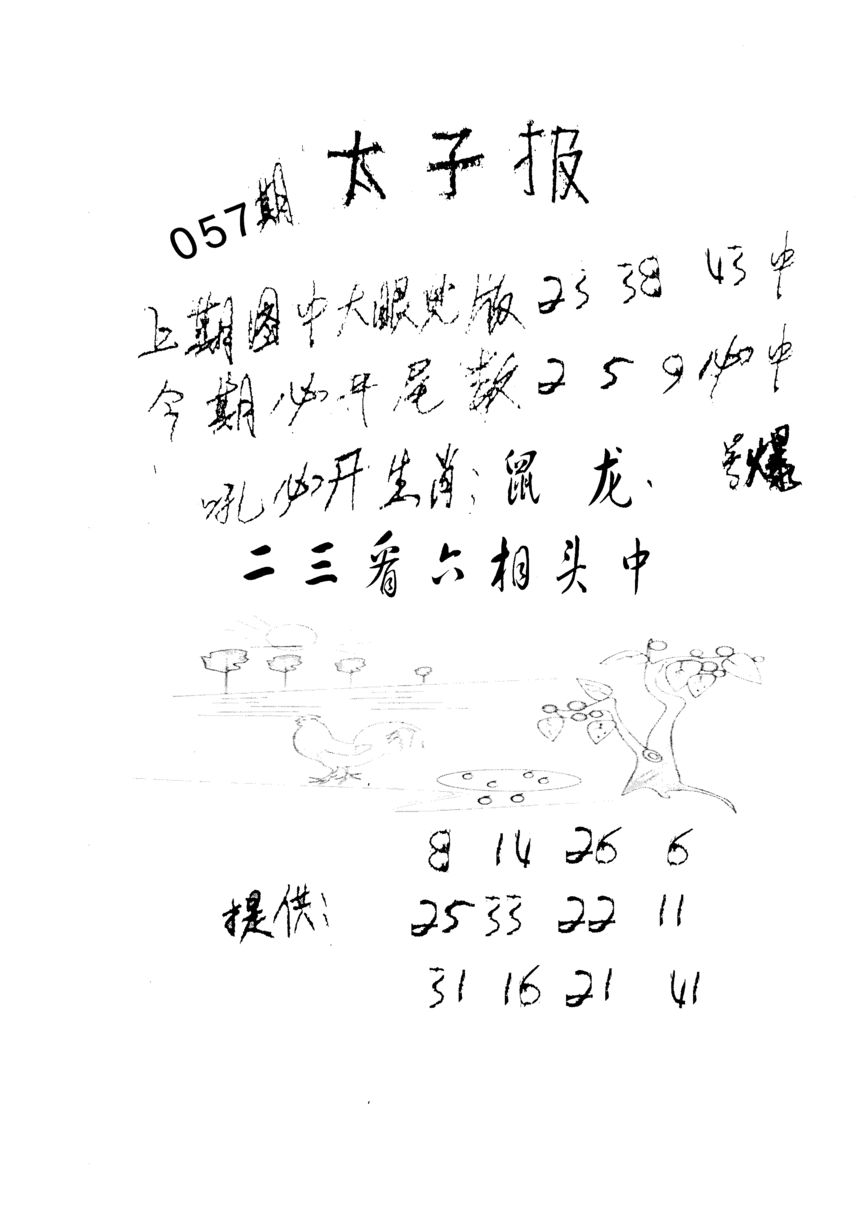 太子报
057期
上期图中大眼光版 23 38 43中
今期必开尾数 2 5 9必中
吼必开生肖:鼠 龙. 爆
二三看六相头中
8 14 26 6
提供: 25 33 22 11
31 16 21 41